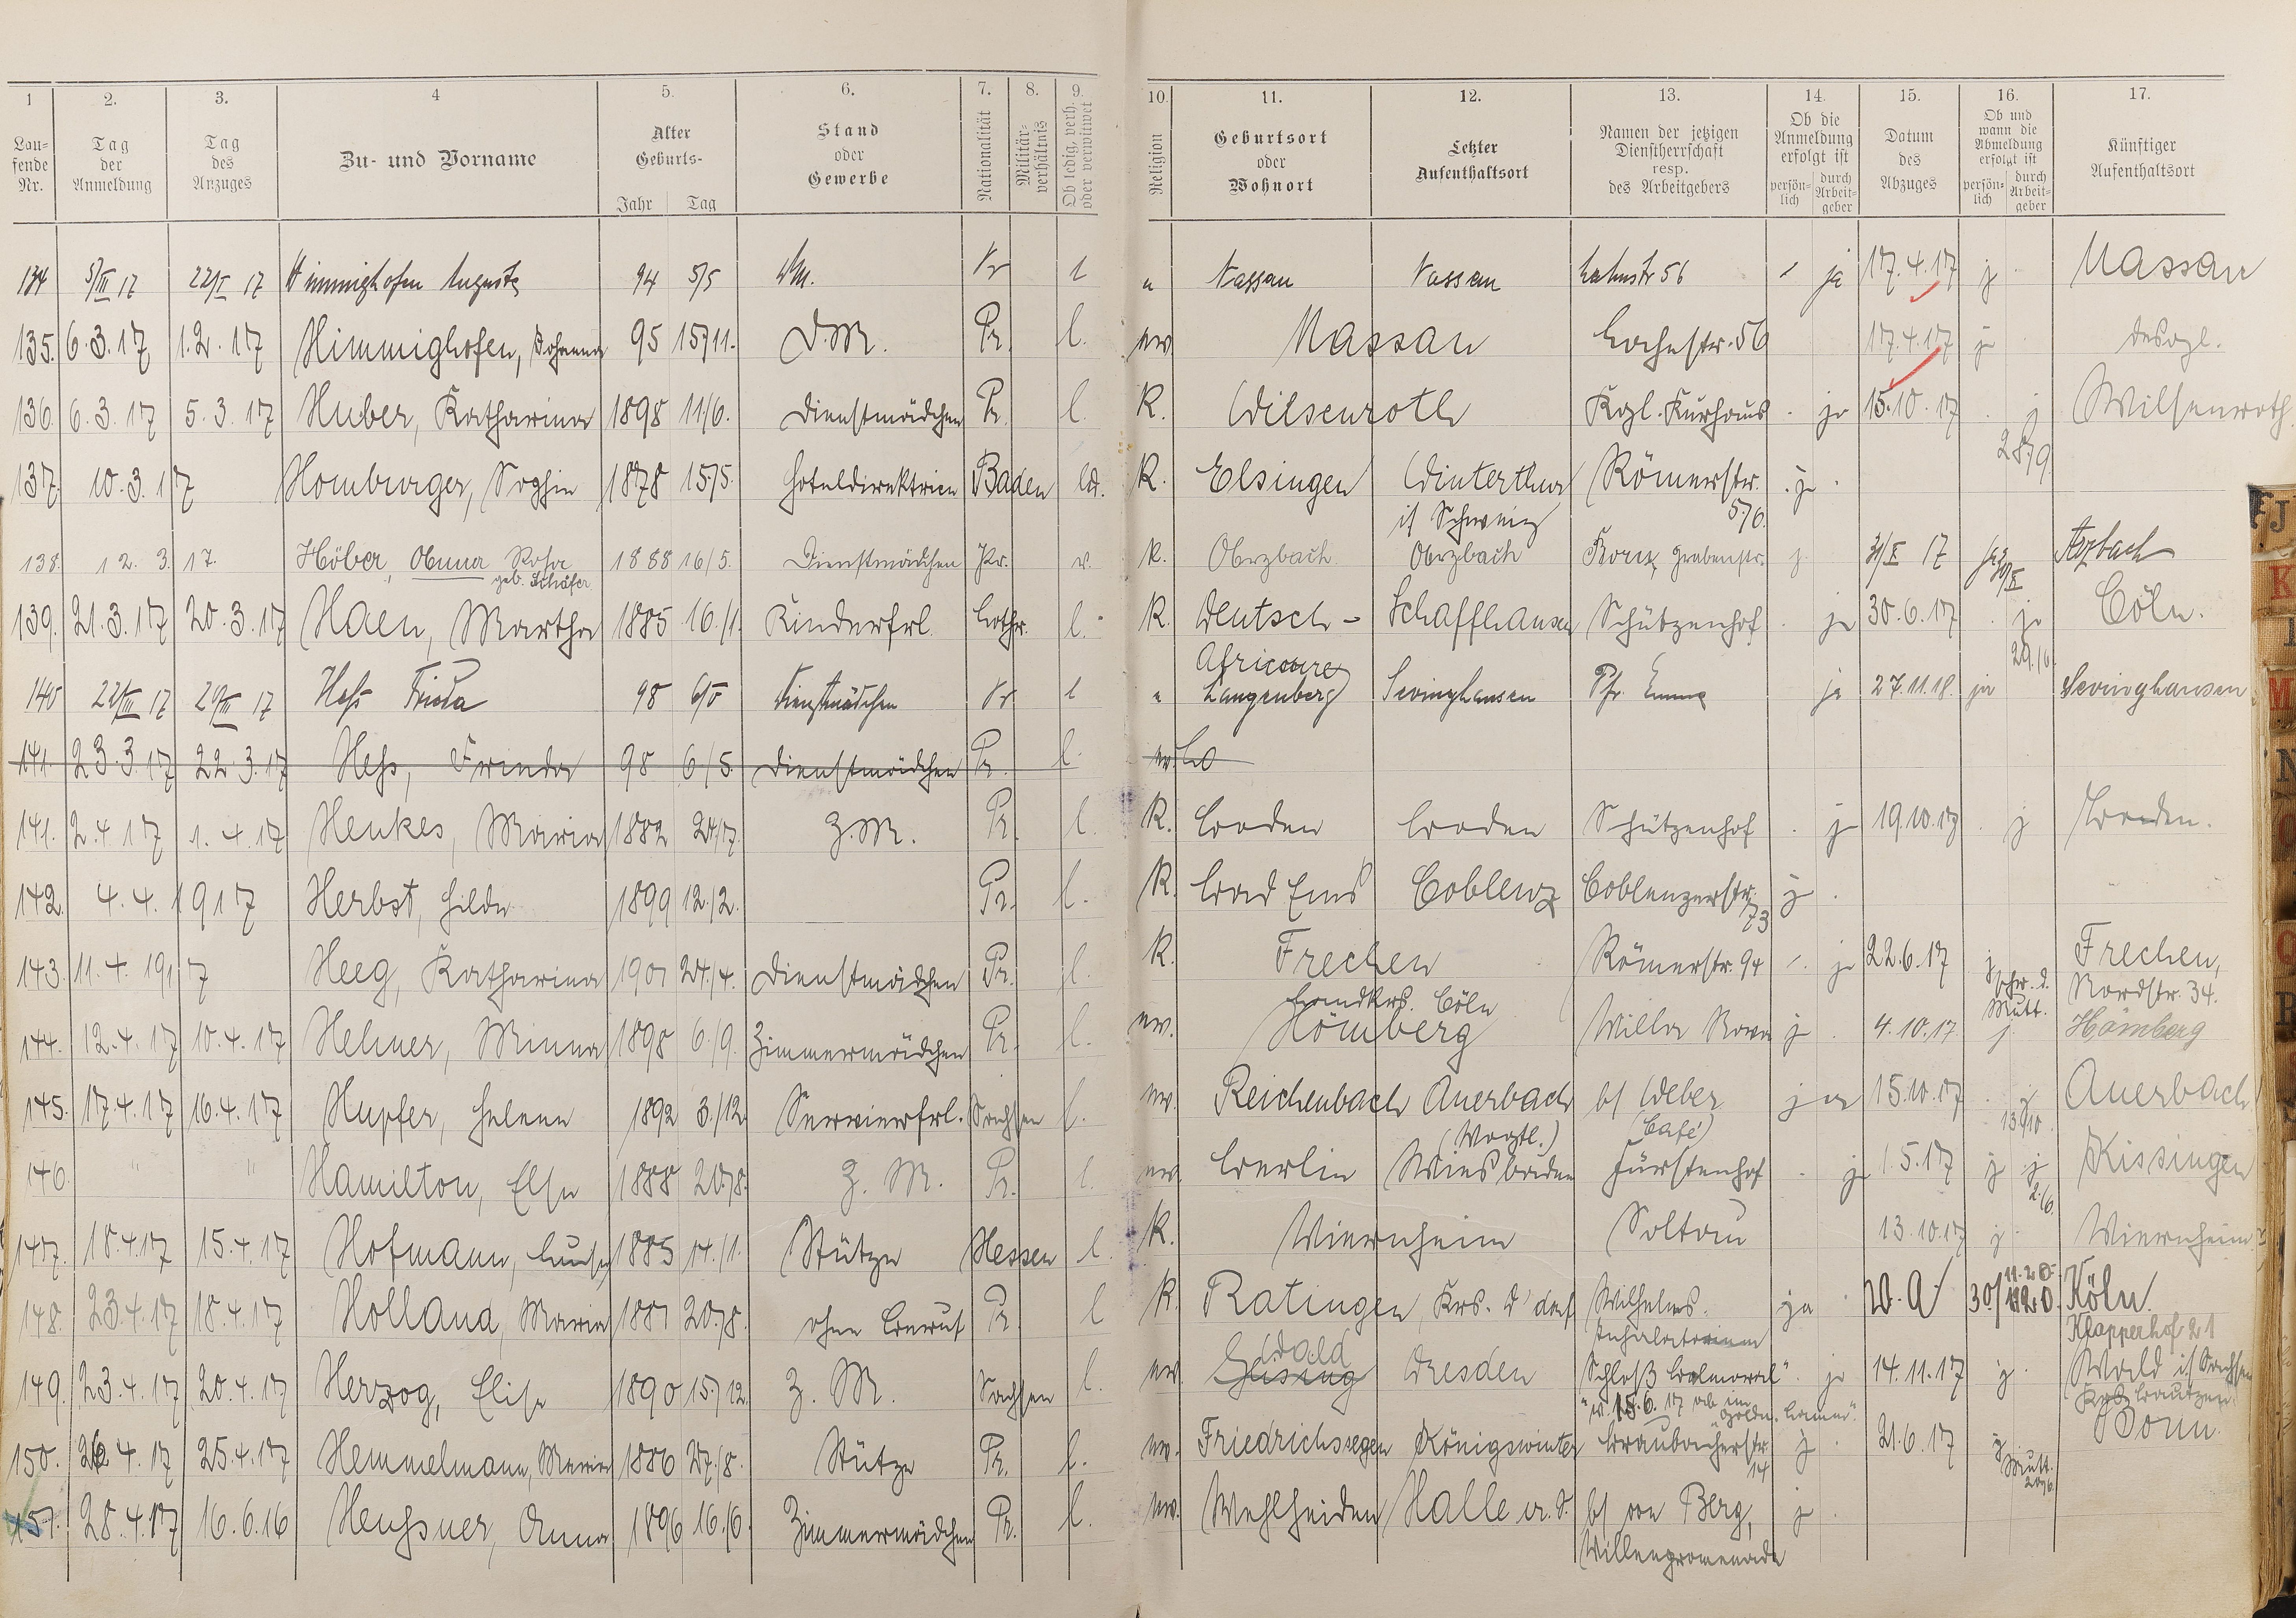 1 2. 3. 4 5. 6. 7. 8. 9. 10. 11. 12. 13. 14. 15. 16. 17.
Lau-
fende
Nr.
Tag
der
Anmeldung
Tag
des
Anzuges
Zu- und Vorname
Alter
Geburts-
Jahr Tag
Stand
oder
Gewerbe
Nationalität
Militär-
verhältnis
Ob ledig, verh.
oder verwitwet
Religion
Geburtsort
oder
Wohnort
Letzter
Aufenthaltsort
Namen der jetzigen
Dienstherrschaft
resp.
des Arbeitgebers
Ob die
Anmeldung
erfolgt ist
persön-
lich
durch
Arbeit-
geber
Datum
des
Abzuges
Ob und
wann die
Abmeldung
erfolgt ist
persön-
lich
durch
Arbeit-
geber
Künftiger
Aufenthaltsort
134 5/III 17 22/I 17 Himmighofen Auguste 94 5/5 Pr l Nassau Nassau Lahnstr 56 ja 17.4.17 j Nassau
135. 6.3.17 1.2.17 Himmighofen, Johanna 95 15/11. D.M. Pr. l. ev. Nassau Lahnstr. 56 17.4.17 j desgl.
136. 6.3.17 5.3.17 Huber, Katharina 1898 11./6. Dienstmädchen Pr. l. K. Wilsenroth Kgl. Kurhaus ja 15.10.17 j Wilsenroth
28/9
137. 10.3.17 Homburger, Sophie 1878 15/5. Hoteldirektrice Baden ld. K. Elsingen Winterthur Römerstr. j
i/ Schweiz 5/6.
138. 12.3.17. Höber, Anna Rosa 1888 16/5. Dienstmädchen Pr. v. K. Arzbach Arzbach Grabenstr. j. 31/X 17 Arzbach
geb. Schäfer
139. 21.3.17 20.3.17 Haen, Martha 1885 16./1. Kinderfrl. Lothr. l. K. Deutsch- Schaffhausen Schützenhof ja 30.6.17 ja Cöln.
29./6.
140 22/III 17 20/III 17 Heß Frieda 98 6/V Dienstmädchen Pr l Langenberg Sevinghausen Pfr. Emme ja 27.11.18. ja Sevinghausen
141. 23.3.17 22.3.17 Heß, Frieda 98 6/5. Dienstmädchen Pr. l. ev.
141. 2.4.17 1.4.17 Henkes, Maria 1882 24/7. Z.M. Pr. l. K. Baden Baden Schützenhof j 19.10.17 j Baden.
142. 4.4.1917 Herbst, Hilda 1899 12./2. Pr. l. K. Bad Ems Coblenz Coblenzerstr. j
73
143. 11.4.1917 Heeg, Katharina 1901 24./4. Dienstmädchen Pr. l. K. Frechen Römerstr. 94 ja 22.6.17 j Frechen,
Landkrs. Cöln Schr. d. Mutt. Nordstr. 34.
144. 12.4.17 10.4.17 Hehner, Minna 1898 6./9. Zimmermädchen Pr. l. ev. Hömberg Villa Nova j 4.10.17. j Hömberg
145. 17.4.17 16.4.17 Hupfer, Helene 1892 3./12. Servierfrl. Sachsen l. ev. Reichenbach Auerbach b/ Weber ja 15.10.17 j Auerbach
(Vogtl.) (Café) 13/10.
146. " " Hamilton, Else 1888 20./8. Z. M. Pr. l. ev. Berlin Wiesbaden Fürstenhof ja 1.5.17 j j Kissingen
2./6.
147. 18.4.17 15.4.17 Hofmann, Luise 1885 14./1. Stütze Hessen l. K. Viernheim Soltau 13.10.17 j Viernheim
148. 23.4.17 18.4.17 Holland, Maria 1881 20./8. ohne Beruf Pr. l K. Ratingen, Krs. D'dorf Wilhelms- ja 30/11.20. Köln
Inhalatorium Klapperhof 21
149. 23.4.17 20.4.17 Herzog, Elise 1890 15./12. Z. M. Sachsen l. ev. Geising Wald Dresden Schloß Balmoral" ja 14.11.17 j Wald i/ Sachsen
15.6.17 ab im Goldn. Lamm". Krs. Bautzen.
150. 26.4.17 25.4.17 Hemmelmann, Maria 1886 27./8. Stütze Pr. l. ev. Friedrichsegen Königswinter Braubacherstr. j 21.6.17 j Bonn.
14 Mutt. 20/6.
151. 28.4.17 16.6.16 Heußner, Anna 1896 16./6. Zimmermädchen Pr. l. ev. Wehlheiden Halle a. S. b/ von Berg, j
Villenpromenade
J
K
M
N